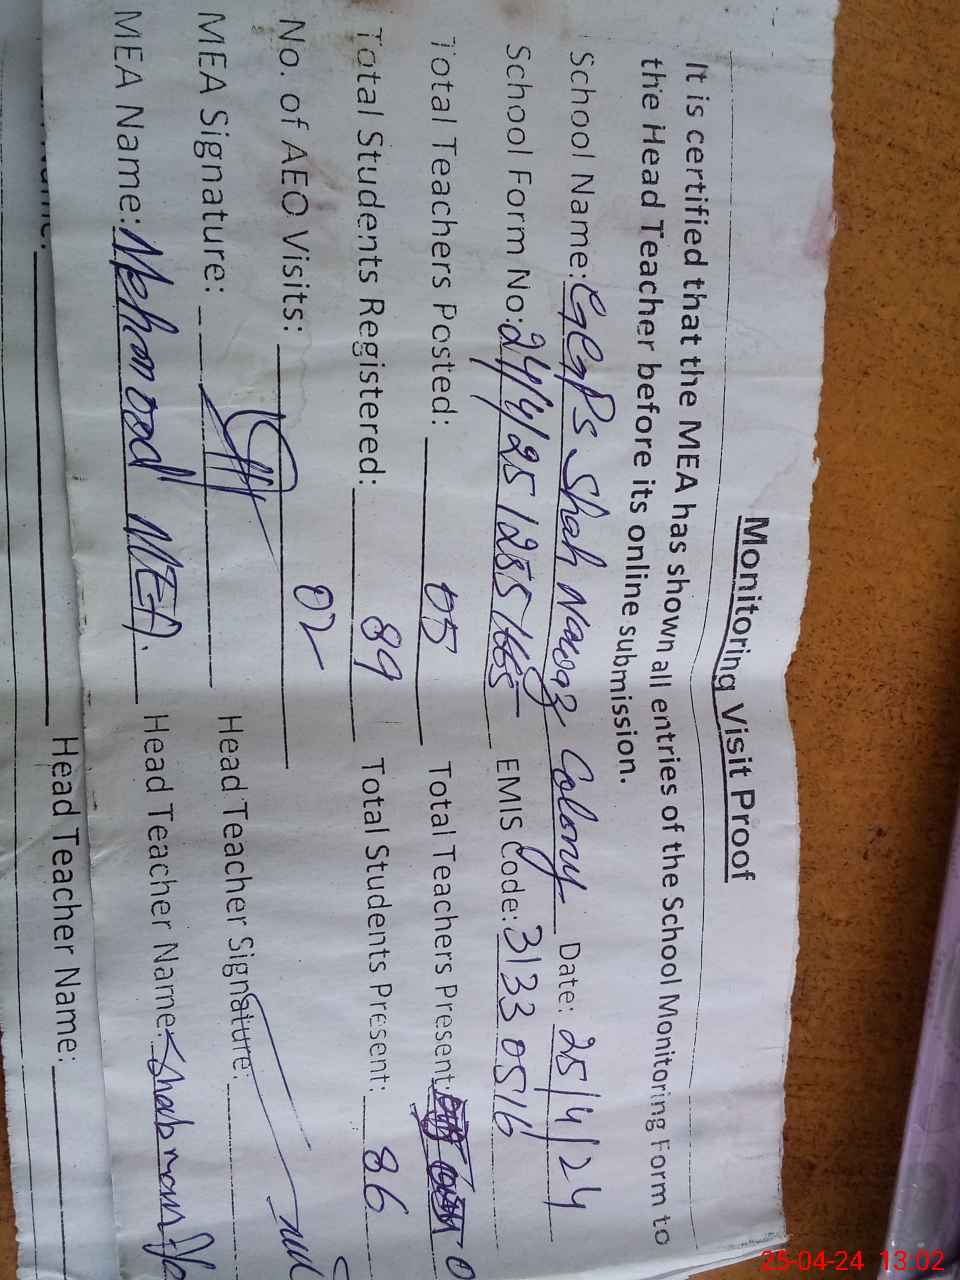 Monitoring Visit Proof
It is certified that the MEA has shown all entries of the School Monitoring Form to
the Head Teacher before its online submission.
School Name: GGPS Shah Nawaz Colony Date: 25/4/24
School Form No: 24/4/25/255/ EMIS Code: 31330516
Total Teachers Posted: 05 Total Teachers Present: 0
Total Students Registered: 89 Total Students Present: 86
No. of AEO Visits: 02
MEA Signature: Head Teacher Signature:
MEA Name: Mehmood MEA. Head Teacher Name: Shabnam
Head Teacher Name:
25-04-24 13:02